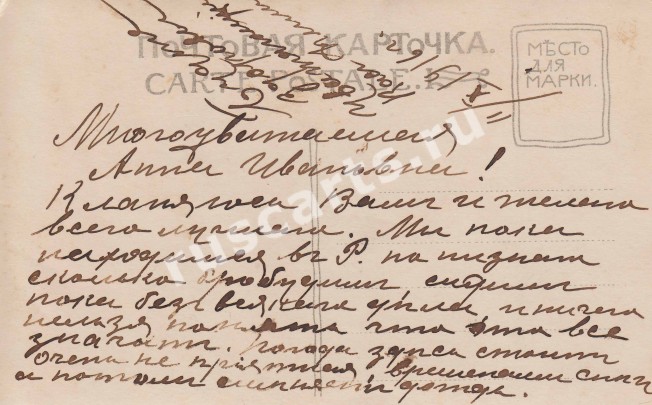 ПОЧТОВАЯ КАРТОЧКА.
CARTE POSTALE.
МѢСТО
ДЛЯ
МАРКИ.
Многоуважаемая
Анна Ивановна!
Кланяюсь Вамъ и желаю
всего лучшаго. Мы пока
находимся въ Р. но
сколько пробудимъ сидимъ
пока безъ всякаго дѣла, и ничего
нельзя понять что это все
значитъ. Погода здѣсь стоитъ
очень не приятная, временами снегъ
а потомъ дождь.
ruscarts.ru